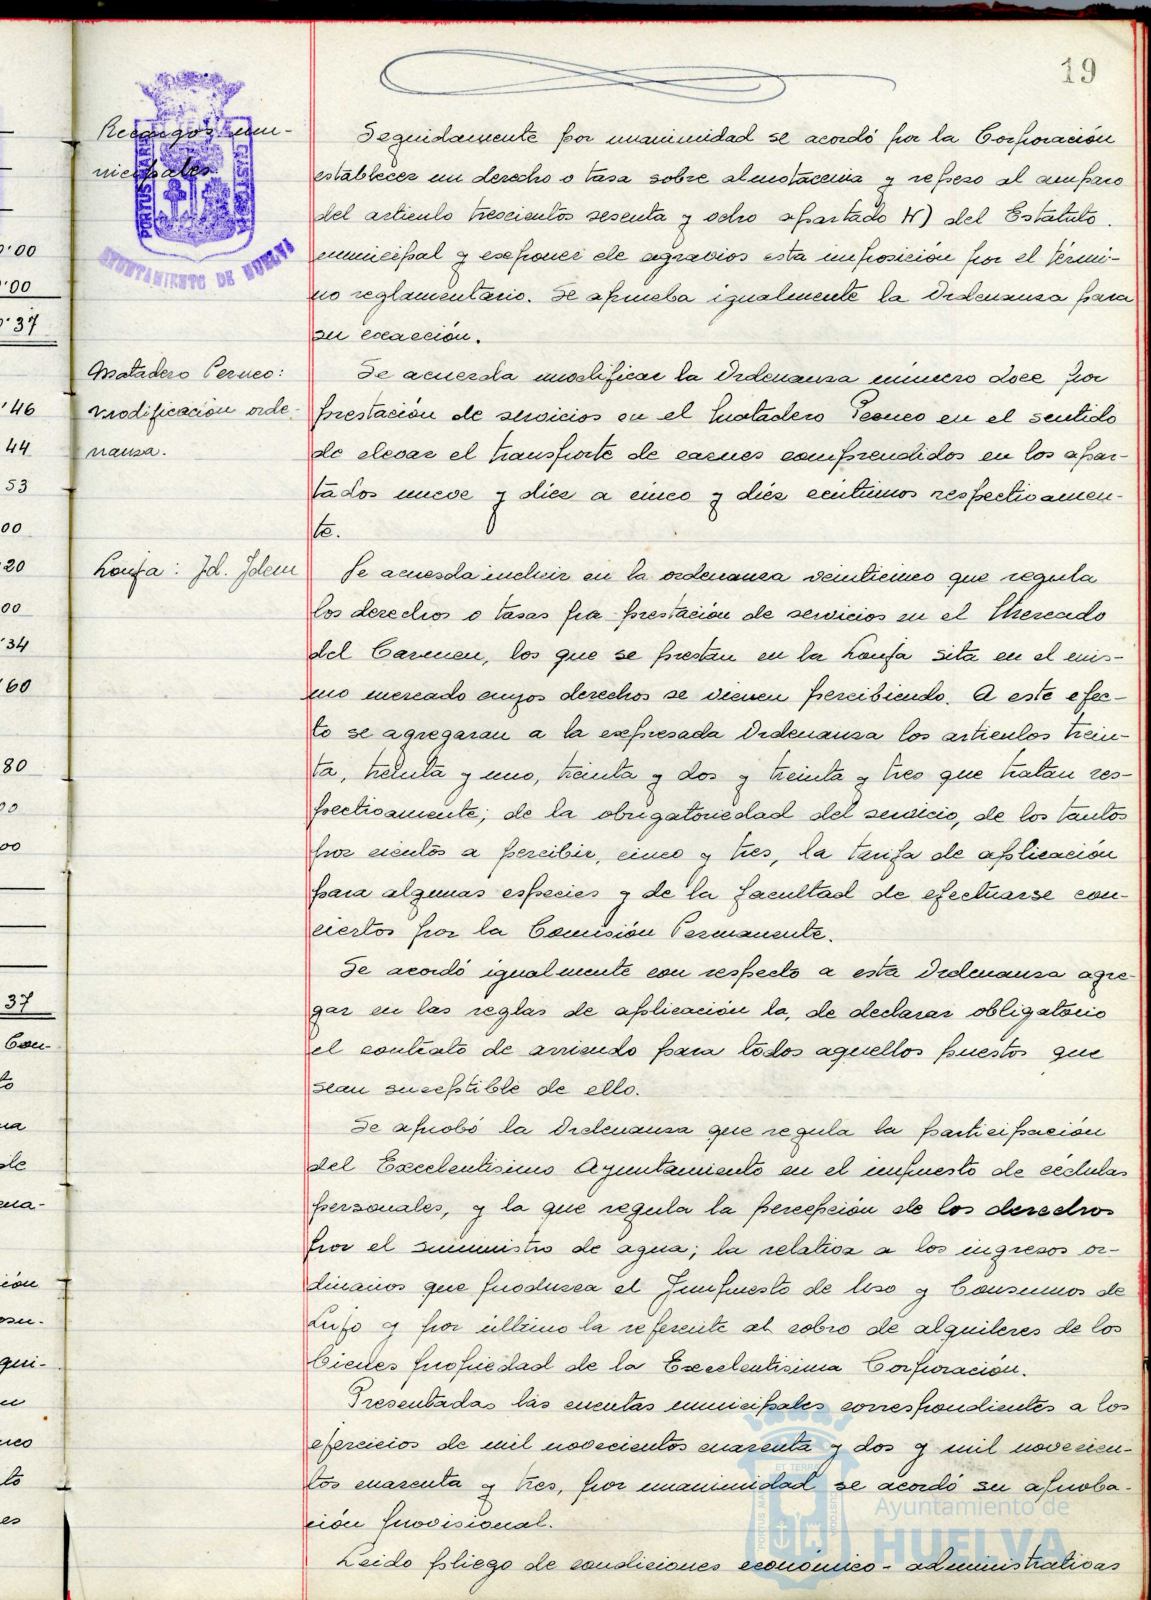 19
Recargos mu-
nicipales.
PORTUS MARIS ET TERRAE CUSTODIA
AYUNTAMIENTO DE HUELVA
Seguidamente por unanimidad se acordó por la Corporación
establecer un derecho o tasa sobre almotacenia y repeso al amparo
del articulo trescientos sesenta y ocho apartado H) del Estatuto
municipal y exponer de agravios esta imposición por el térmi-
no reglamentario. Se aprueba igualmente la Ordenanza para
su exacción.
Matadero Perneo:
modificación orde-
nanza.
Se acuerda modificar la Ordenanza número doce por
prestación de servicios en el Matadero Perneo en el sentido
de elevar el transporte de carnes comprendidos en los apar-
tados nueve y diez a cinco y diéz céntimos respectivamen-
te.
Lonja: Id. Idem
Se acuerda incluir en la ordenanza veinticinco que regula
los derechos o tasas pra prestación de servicios en el Mercado
del Carmen, los que se prestan en la Lonja sita en el mis-
mo mercado cuyos derechos se vienen percibiendo. A este efec-
to se agregaran a la expresada Ordenanza los articulos trein-
ta, treinta y uno, treinta y dos y treinta y tres que tratan res-
pectivamente; de la obrigatoriedad del servicio, de los tantos
por cientos a percibir, cinco y tres, la tarifa de aplicación
para algunas especies y de la facultad de efectuarse con-
ciertos por la Comisión Permanente.
Se acordó igualmente con respecto a esta Ordenanza agre-
gar en las reglas de aplicación la, de declarar obligatorio
el contrato de arriendo para todos aquellos puestos que
sean suceptible de ello.
Se aprobó la Ordenanza que regula la participación
del Excelentisimo Ayuntamiento en el impuesto de cédulas
personales, y la que regula la percepción de los derechos
por el suministro de agua; la relativa a los ingresos or-
dinarios que produzca el Impuesto de Uso y Consumos de
Lujo y por último la referente al cobro de alquileres de los
bienes propiedad de la Excelentisima Corporación.
Presentadas las cuentas municipales correspondientes a los
ejercicios de mil novecientos cuarenta y dos y mil novecien-
tos cuarenta y tres, por unanimidad se acordó su aproba-
ción provisional.
Leido pliego de condiciones económico-administrativas
Ayuntamiento de
HUELVA